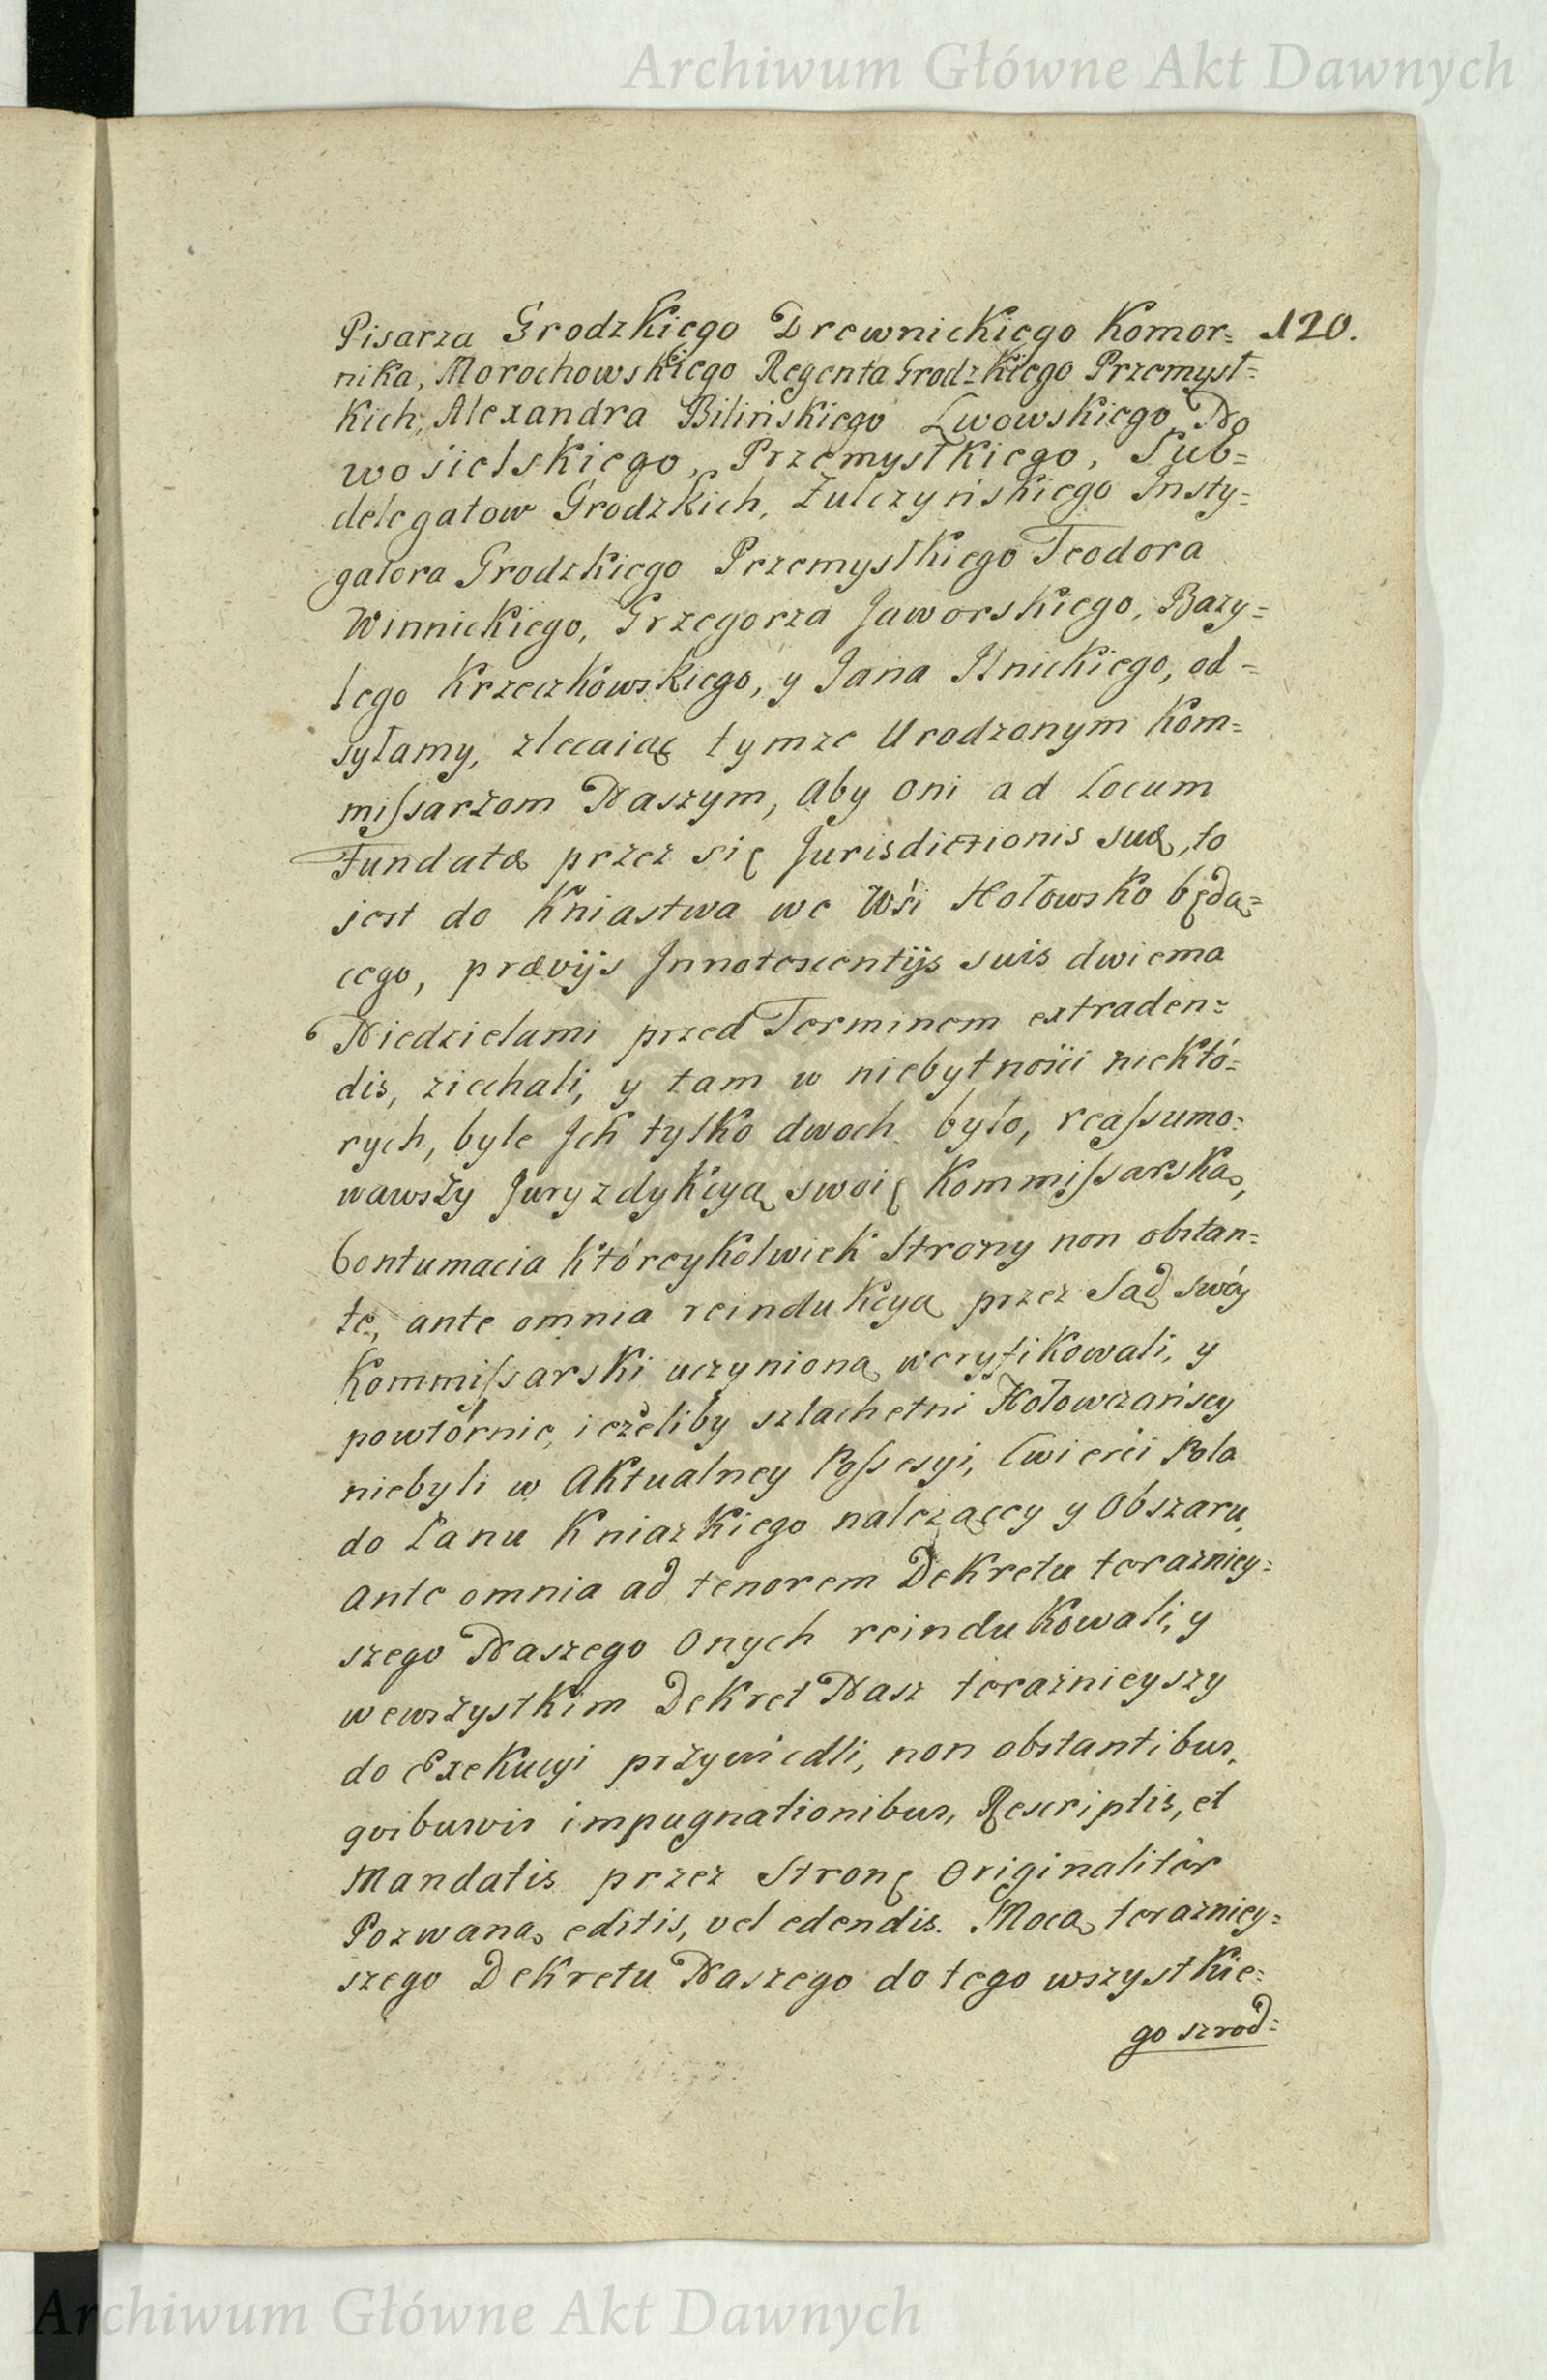 Archiwum Główne Akt Dawnych
Pisarza Grodzkiego Drewnickiego Komor= 120.
nika, Morochowskiego Regenta Grodzkiego Przemysł=
kich, Alexandra Bilińskiego Lwowskiego, No
wosielskiego, Przemysłkiego, Sub=
delegatow Grodzkich, Żulczyńskiego Insty=
gatora Grodzkiego Przemysłkiego Teodora
Winnickiego, Grzegorza Jaworskiego, Bazy=
lego Krzeczkowskiego, y Jana Ilnickiego, od=
syłamy, zlecaiąc tymże Urodzonym Kom=
missarzom Naszym, aby oni ad Locum
Fundatæ przez się Jurisdictionis suæ, to
jest do Kniastwa we Wśi Hołowsko będą=
cego, prævijs Innotescentijs suis dwiema
Niedzielami przed Terminem extraden=
dis, ziechali, y tam w niebytności niektó=
rych, byle Ich tylko dwoch było, reassumo=
wawszy Juryzdykcyą swoię Kommissarską,
Contumacia któreykolwiek Strony non obstan=
te, ante omnia reindukcyą przez Sąd swóy
Kommissarski uczynioną weryfikowali, y
powtórnie, ieżeliby szlachetni Hołowczańscy
niebyli w Aktualney Possesyi, Cwierci Pola
do Łanu Kniazkiego należącey y Obszaru,
ante omnia ad tenorem Dekretu teraźniey=
szego Naszego Onych reindukowali, y
wewszystkim Dekret Nasz teraźnieyszy
do Exekucyi przywiedli, non obstantibus,
qvibusvis impugnationibus, Rescriptis, et
Mandatis przez Stronę Originalitèr
Pozwaną editis, vel edendis. Mocą teraźniey=
szego Dekretu Naszego do tego wszystkie=
go szrod=
Archiwum Główne Akt Dawnych